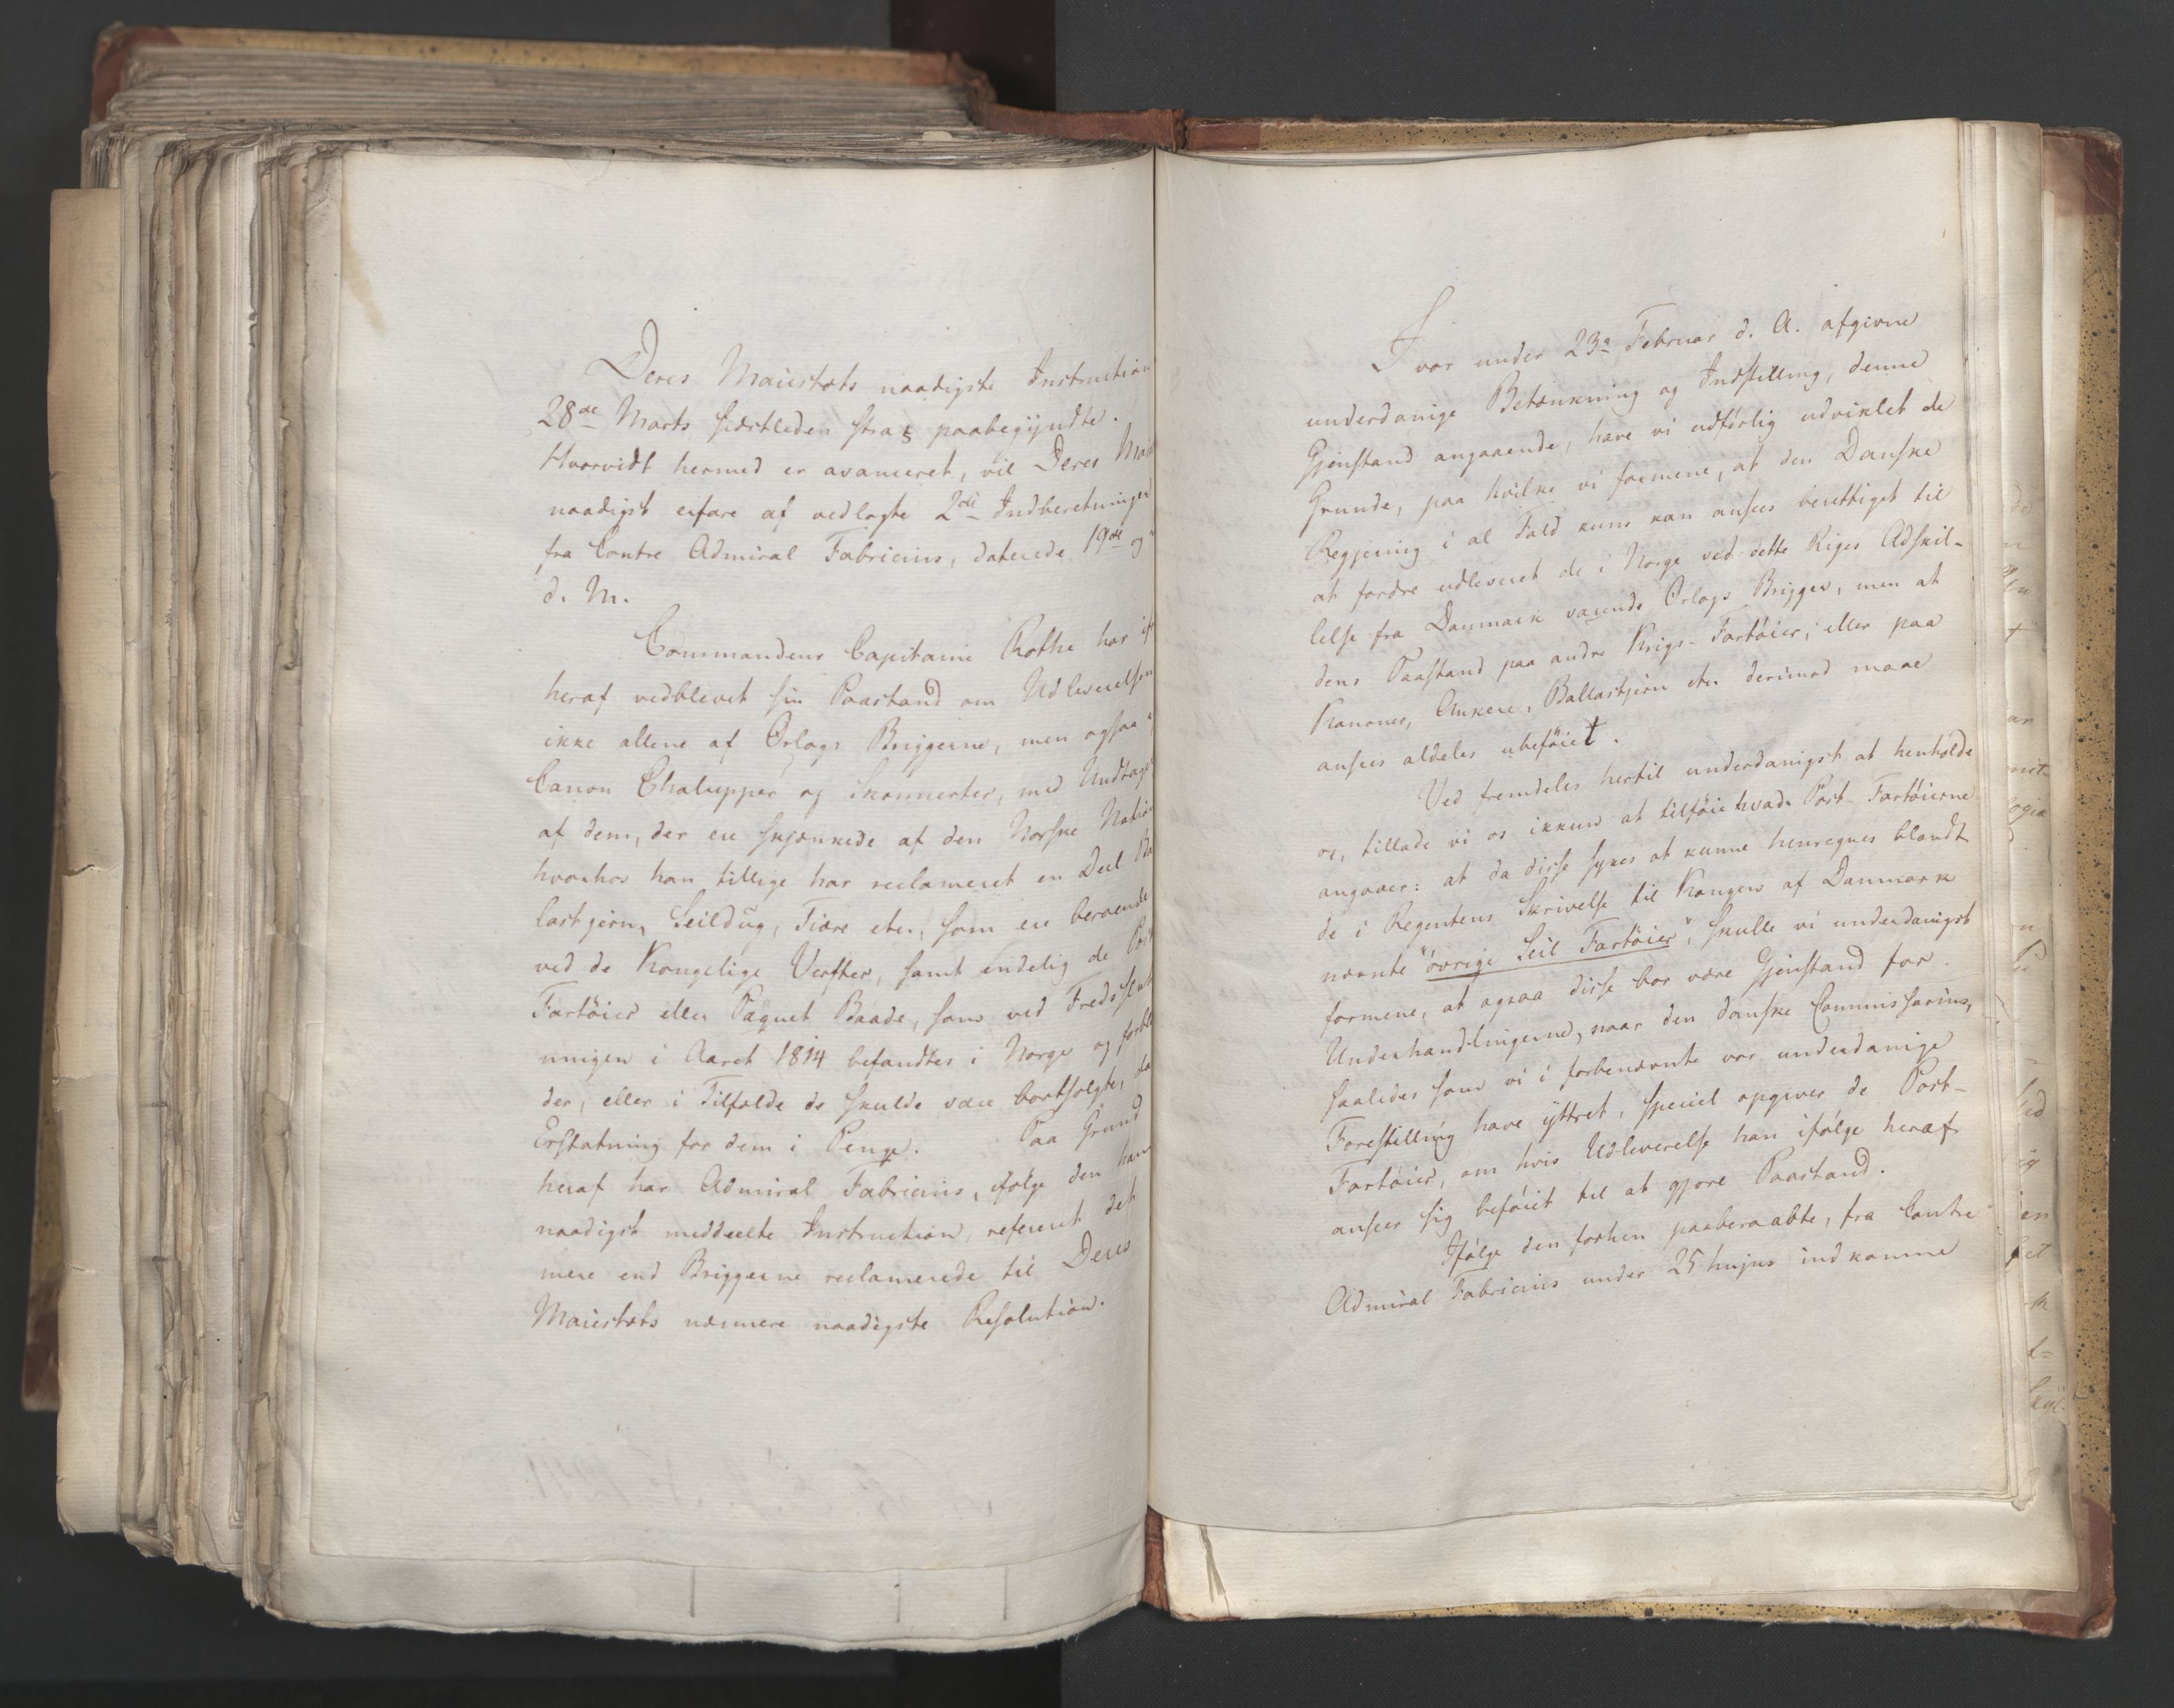 Deres Maiestæts naadigste Instruction
28de Marts sidstleden strax paabegyndte.
Hvorvidt hermed er avanceret, vil Deres
naadigst erfare af vedlagte 2de Indberetninger
fra Contre Admiral Fabricius, daterede 19de og
d. M.
Commandeur Capitaine Rothe har
heraf vedblevet sin Paastand om Udleverelsen
ikke allene af Orlogs Briggerne, men ogsaa
Canon Chalupper og Skonnerter, med
af dem, der ere skjænkede af den Norske
hvorhos han tillige har reclameret en Deel
lastjern, Seildug, Tiære etc., som ere beroende
ved de Kongelige Verfter, samt endelig de
Fartöier eller Paquet Baade, som ved
ningen i Aaret 1814 befandtes i Norge og
der, eller i Tilfælde de skulde være bortsolgte,
Erstatning for dem i Penge. Paa Grund
heraf har Admiral Fabricius, ifølge den ham
naadigst meddeelte Instruction, refereret det
mere end Briggerne reclamerede til Deres
Maiestæts nærmere naadigste Resolution.
I vor under 23de Februar d. A. afgivne
underdanige Betænkning og Indstilling, denne
Gjenstand angaaende, have vi udförlig udviklet de
Grunde, paa hvilke vi formene, at den Danske
Regjering i al Fald kuns kan ansees berettiget til
at fordre udleveret de i Norge ved dette Riges Adskil-
lelse fra Danmark værende Orlogs Brigger, men at
dens Paastand paa andre Krigs-Fartöier, eller paa
Kanoner, Ankere, Ballastjern etc. derimod maae
ansees aldeles ubeföiet.
Ved fremdeles hertil underdanigst at henholde
os, tillade vi os ikkun at tilföie hvad Post-Fartöierne
angaaer: at da disse synes at kunne henregnes blandt
de i Regentens Skrivelse til Kongen af Danmark
nævnte "övrige Seil Fartöier", skulle vi underdanigst
formene, at ogsaa disse bør være Gjenstand for
Underhandlingerne, naar den danske Commissarius,
saaledes som vi i forbenævnte vor underdanige
Forestilling have yttret, speciel opgiver de Post-
Fartöier, om hvis Udleverelse han ifölge heraf
anseer sig beföiet til at gjøre Paastand.
Ifölge den forhen paaberaabte, fra Contre
Admiral Fabricius under 25 hujus indkomne